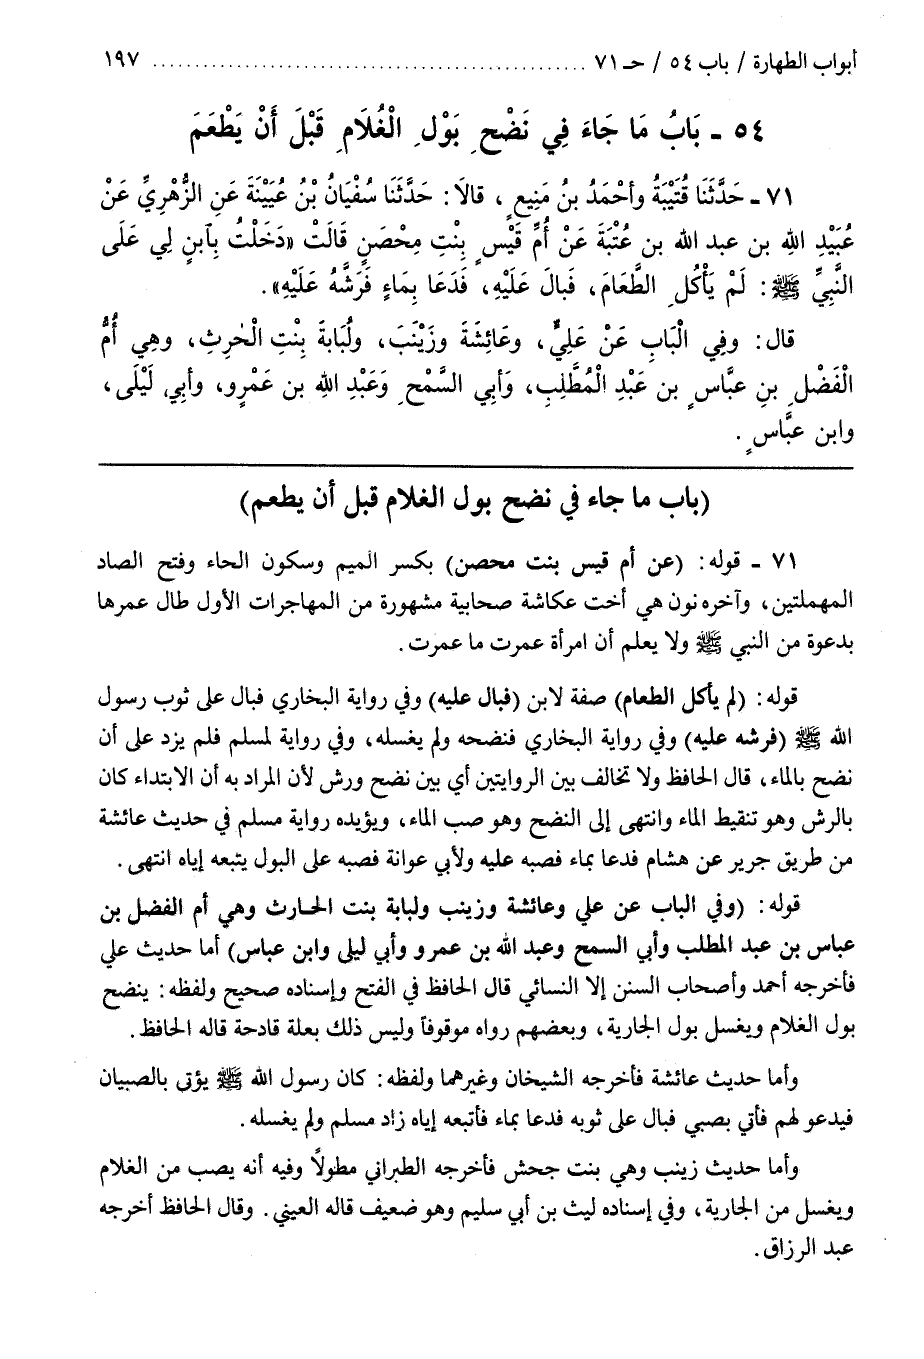 أبواب الطهارة / باب ٥٤ / حـ ٧١ ................................................ ١٩٧
٥٤ ـ بَابُ مَا جَاءَ فِي نَضْحِ بَوْلِ الْغُلَامِ قَبْلَ أَنْ يَطْعَمَ
٧١ ـ حَدَّثَنَا قُتَيْبَةُ وأحْمَدُ بنُ مَنِيعٍ، قالَا: حَدَّثَنَا سُفْيَانُ بْنُ عُيَيْنَةَ عَنِ الزُّهْرِيِّ عَنْ
عُبَيْدِ اللهِ بن عبد الله بن عُتْبَةَ عَنْ أُمِّ قَيْسٍ بِنْتِ مِحْصَنٍ قَالَتْ «دَخَلْتُ بِآبنٍ لِي عَلَى
النَّبِيِّ ﷺ: لَمْ يَأْكُلِ الطَّعَامَ، فَبالَ عَلَيْهِ، فَدَعَا بِمَاءٍ فَرَشَّهُ عَلَيْهِ».
قال: وفِي الْبَابِ عَنْ عَلِيٍّ، وعَائِشَةَ وزَيْنَبَ، ولُبَابَةَ بِنْتِ الْحٰرِثِ، وهِي أُمُّ
الْفَضْلِ بنِ عبَّاسٍ بن عَبْدِ الْمُطَّلِبِ، وَأبِي السَّمْحِ وَعَبْدِ اللهِ بن عَمْرٍو، وأبِي لَيْلَى،
وابن عبَّاسٍ.
(باب ما جاء في نضح بول الغلام قبل أن يطعم)
٧١ - قوله: (عن أم قيس بنت محصن) بكسر الميم وسكون الحاء وفتح الصاد
المهملتين، وآخره نون هي أخت عكاشة صحابية مشهورة من المهاجرات الأول طال عمرها
بدعوة من النبي ﷺ ولا يعلم أن امرأة عمرت ما عمرت.
قوله: (لم يأكل الطعام) صفة لابن (فبال عليه) وفي رواية البخاري فبال على ثوب رسول
الله ﷺ (فرشه عليه) وفي رواية البخاري فنضحه ولم يغسله، وفي رواية لمسلم فلم يزد على أن
نضح بالماء، قال الحافظ ولا تخالف بين الروايتين أي بين نضح ورش لأن المراد به أن الابتداء كان
بالرش وهو تنقيط الماء وانتهى إلى النضح وهو صب الماء، ويؤيده رواية مسلم في حديث عائشة
من طريق جرير عن هشام فدعا بماء فصبه عليه ولأبي عوانة فصبه على البول يتبعه إياه انتهى.
قوله: (وفي الباب عن علي وعائشة وزينب ولبابة بنت الحارث وهي أم الفضل بن
عباس بن عبد المطلب وأبي السمح وعبد الله بن عمرو وأبي ليلى وابن عباس) أما حديث علي
فأخرجه أحمد وأصحاب السنن إلا النسائي قال الحافظ في الفتح وإسناده صحيح ولفظه: ينضح
بول الغلام ويغسل بول الجارية، وبعضهم رواه موقوفاً وليس ذلك بعلة قادحة قاله الحافظ.
وأما حديث عائشة فأخرجه الشيخان وغيرهما ولفظه: كان رسول الله ﷺ يؤتى بالصبيان
فيدعو لهم فأتي بصبي فبال على ثوبه فدعا بماء فأتبعه إياه زاد مسلم ولم يغسله.
وأما حديث زينب وهي بنت جحش فأخرجه الطبراني مطولاً وفيه أنه يصب من الغلام
ويغسل من الجارية، وفي إسناده ليث بن أبي سليم وهو ضعيف قاله العيني. وقال الحافظ أخرجه
عبد الرزاق.